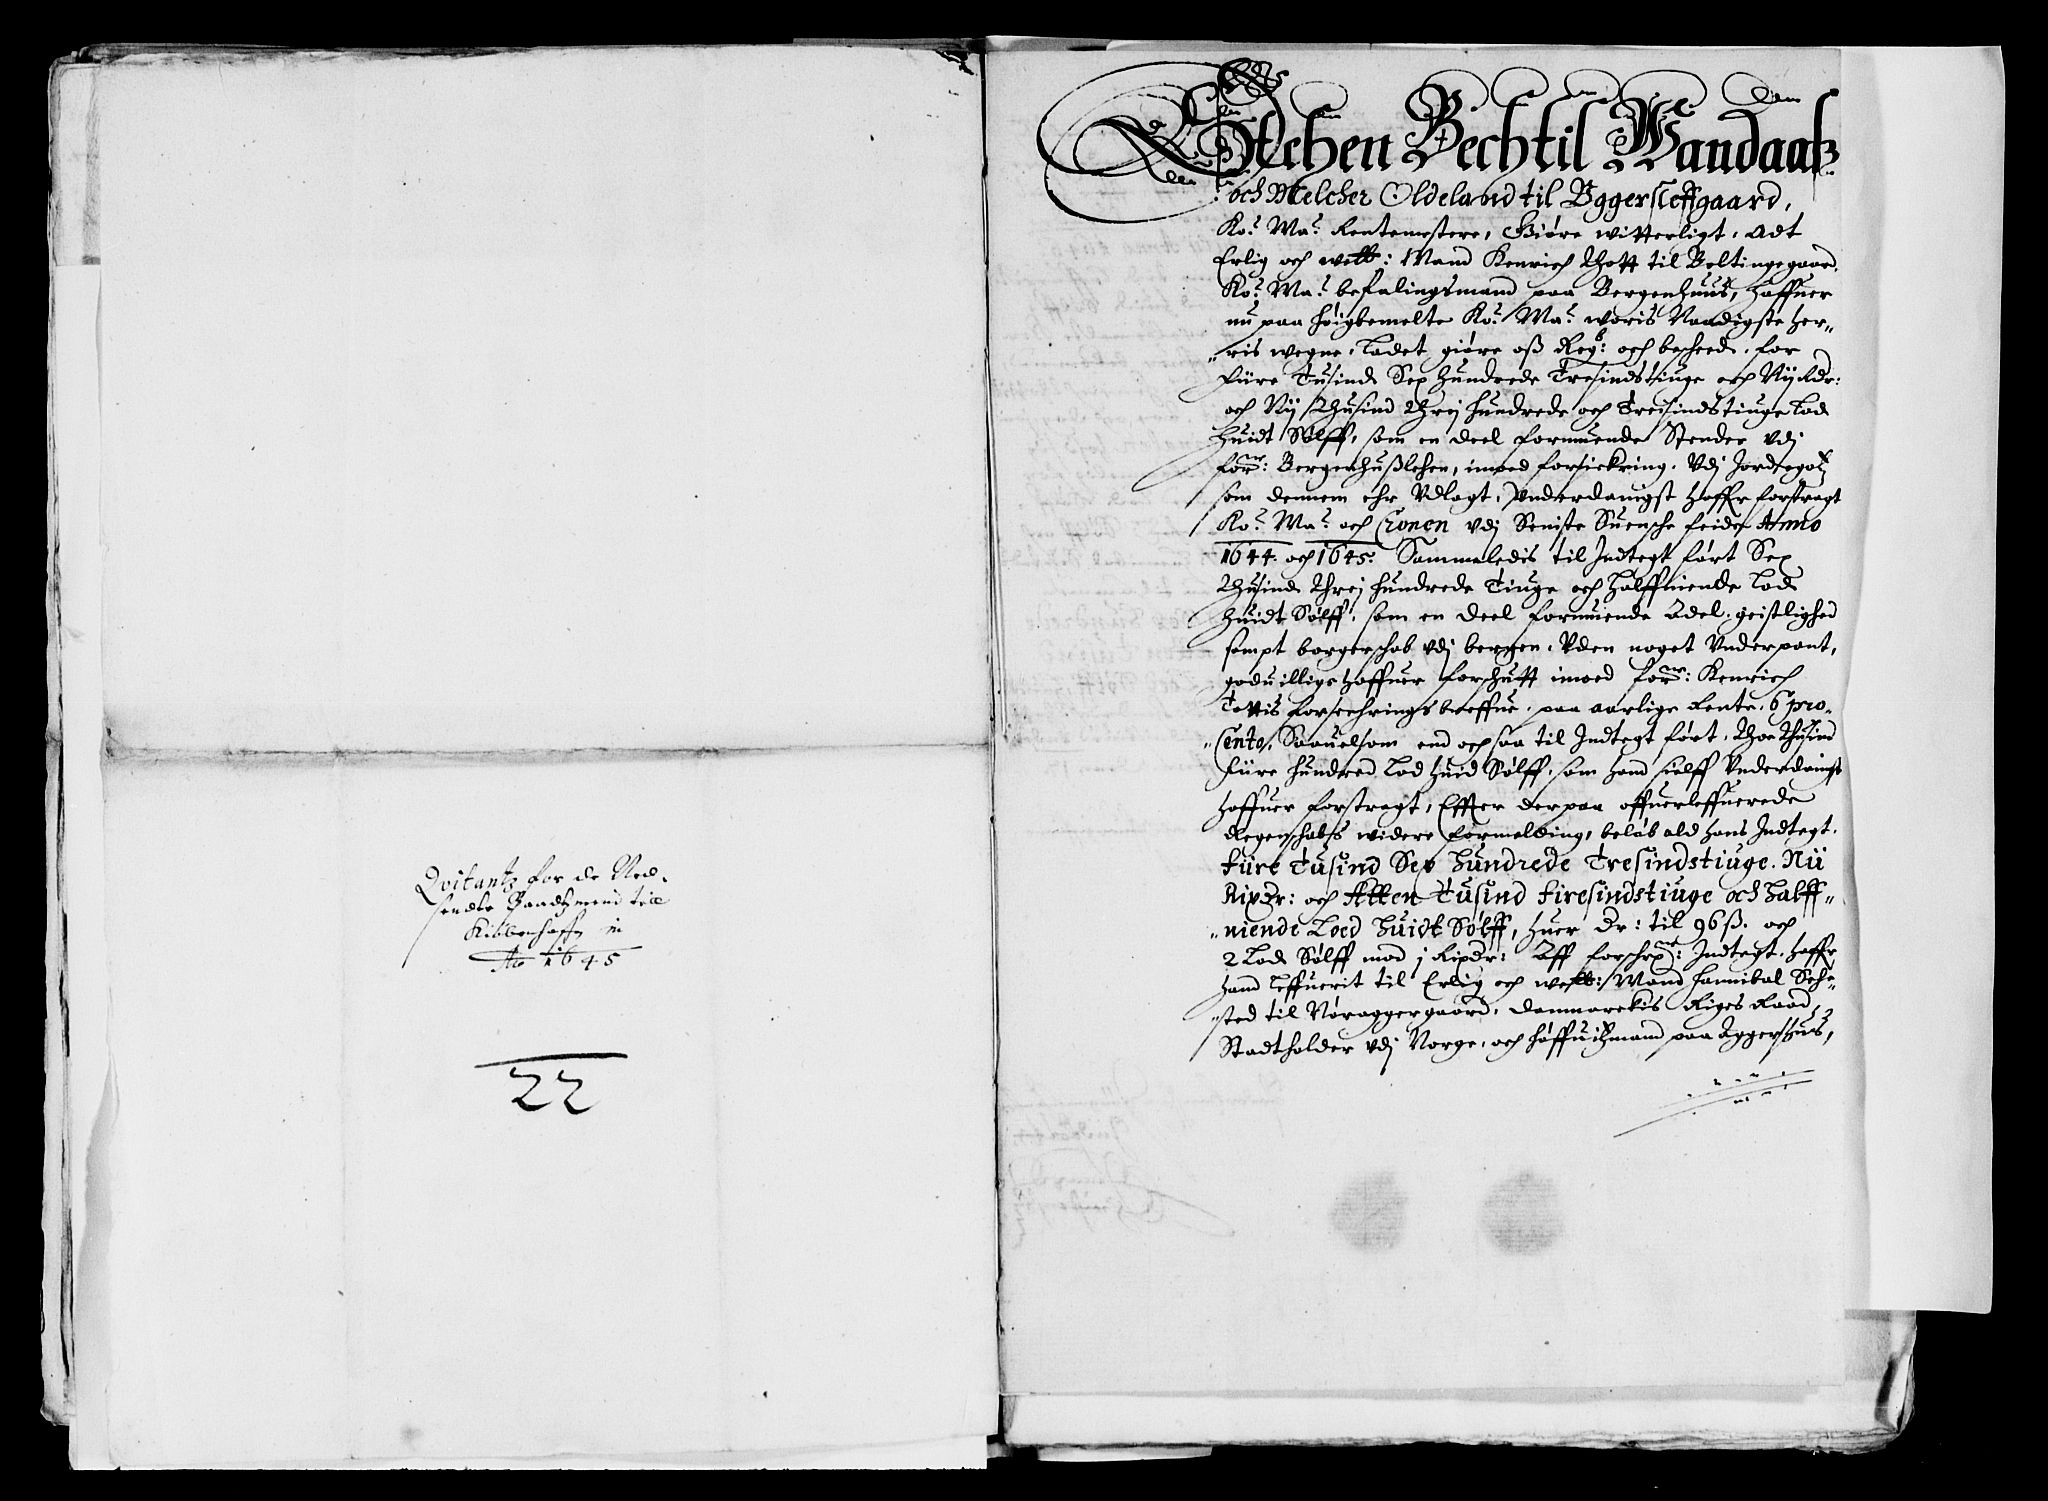 Qvitantz for de Ned-
sendte Baadtzmend till
Kiøbenhaffn in
Ao 1645
22
Achen Bechtil Wandaas
och Melcher Oldeland til Vggersleffgaard,
Ko: Ma: Rentemestere, Giøre witterligt, Adt
Erlig och welb: Mand Henrich Thott til Boltingegaard,
Ko: Ma: befalingsmand paa Bergenhuus, haffuer
nu paa høigbemelte Ko: Ma: woris Naadigste her-
ris wegne, ladet giøre oß Regsb: och bescheed, for
Fiire Tusind Sex Hundrede Tresindstiuge och Nij Rdr:
och Nij Thusind Threj hundrede och Tresindstiuge Lod
Huidt Sølff, som en deel formuende Stender vdj
forne: Bergenhußlehen, imod forsickring, Vdj Jordegotz
som dennem ehr Vdlagt, Vnderdanigst haffr forstragt
Ko: Ma: och Cronen vdj Seniste Suensche feide Anno
1644. och 1645. Sammeledis til Indtegt ført Sex
Thusind Threj hundrede Tiuge och Halffniende Lod
Huidt Sølff, som en deel formuende Adel, geistlighed
sampt borgerschab vdj bergen, Vden noget Vnderpant,
goduilligt haffuer forschutt imod forne: Henrich
Tottis forsechringsbreffue, paa aarlige Rente, 6 pro-
Cento, Saauelsom end ochsaa til Indtegt ført, Thoe Thusind
Fiire hundred Lod huid Sølff, som hand sielff Vnderdanigst
haffuer forstragt, Effter derpaa offuerleffuerede
Regenschabs widere formelding, beløb ald hans Indtegt.
Fiire Tusind Sex Hundrede Tresindstiuge, Nij
Rixdr: och Atten Tusind Firesindstiuge och Halff-
niende Loed Huidt Sølff, huer dr: til 96 ß. och
2 Lod Sølff mod 1 Rixdr: Aff forschrne: Indtegt, haffr
hand leffuerit til Erlig och welb: Mand Hannibal Sehe-
sted til Nøraggergaard, Danmarckis Riges Raad,
Stadtholder vdj Norge, och høffuitzmand paa Aggershuus,